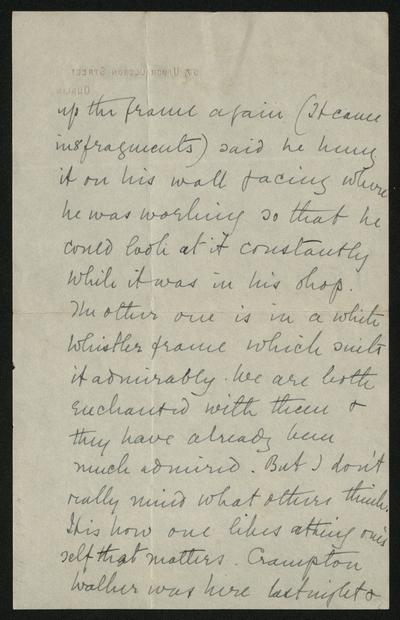 57 Upper Leeson Street
Dublin
up the frame again (It came
in 8 fragments) said he hung
it on his wall facing where
he was working so that he
could look at it constantly
while it was in his shop.
The other one is in a white
Whistler frame which suits
it admirably. We are both
enchanted with them &
they have already been
much admired. But I don't
really mind what others think.
It is how one likes a thing one's
self that matters. Crampton
Walker was here last night &